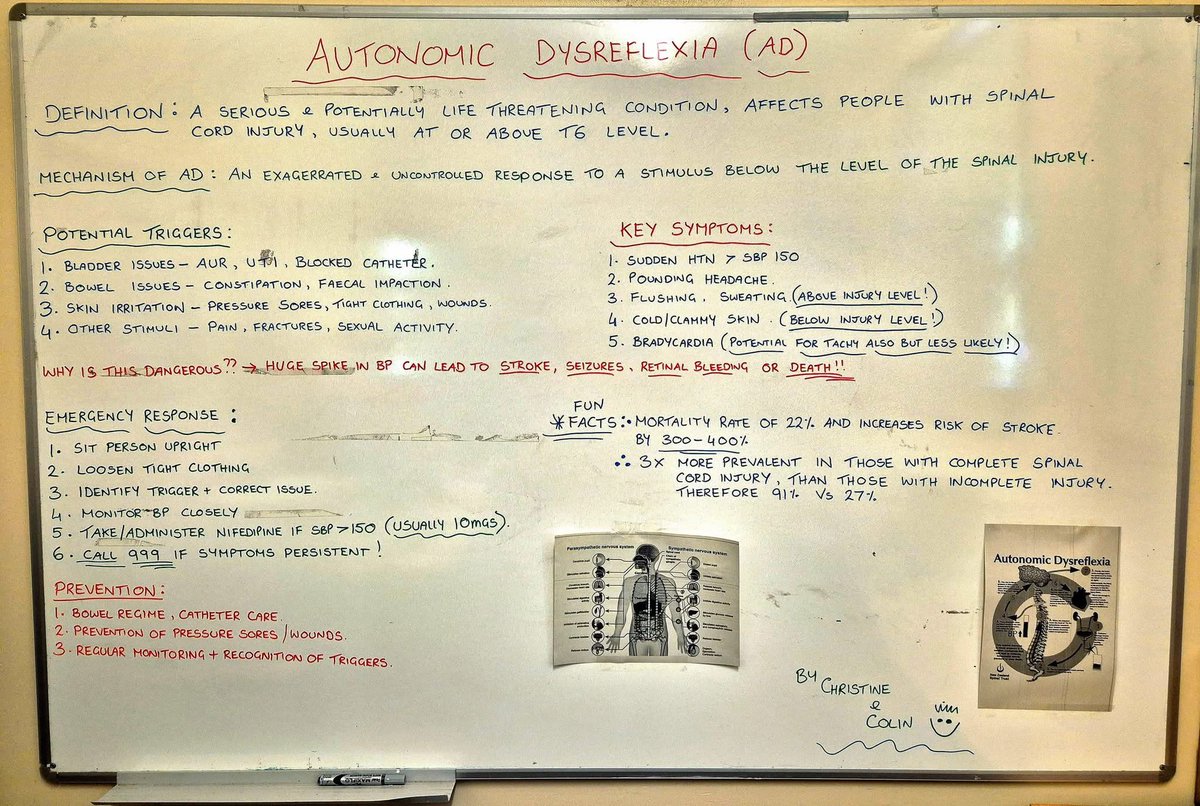 AUTONOMIC DYSREFLEXIA (AD)
DEFINITION: A SERIOUS & POTENTIALLY LIFE THREATENING CONDITION, AFFECTS PEOPLE WITH SPINAL
CORD INJURY, USUALLY AT OR ABOVE T6 LEVEL.
MECHANISM OF AD: AN EXAGERRATED & UNCONTROLLED RESPONSE TO A STIMULUS BELOW THE LEVEL OF THE SPINAL INJURY.
POTENTIAL TRIGGERS:
1. BLADDER ISSUES - AUR, UTI, BLOCKED CATHETER.
2. BOWEL ISSUES - CONSTIPATION, FAECAL IMPACTION.
3. SKIN IRRITATION - PRESSURE SORES, TIGHT CLOTHING, WOUNDS.
4. OTHER STIMULI - PAIN, FRACTURES, SEXUAL ACTIVITY.
KEY SYMPTOMS:
1. SUDDEN HTN > SBP 150
2. POUNDING HEADACHE.
3. FLUSHING. SWEATING (ABOVE INJURY LEVEL!)
4. COLD/CLAMMY SKIN. (BELOW INJURY LEVEL!)
5. BRADYCARDIA (POTENTIAL FOR TACHY ALSO BUT LESS LIKELY!)
WHY IS THIS DANGEROUS?? → HUGE SPIKE IN BP CAN LEAD TO STROKE, SEIZURES, RETINAL BLEEDING OR DEATH!!
EMERGENCY RESPONSE:
1. SIT PERSON UPRIGHT
2. LOOSEN TIGHT CLOTHING
3. IDENTIFY TRIGGER + CORRECT ISSUE.
4. MONITOR BP CLOSELY
5. TAKE/ADMINISTER NIFEDIPINE IF SBP > 150 (USUALLY 10mgs).
6. CALL 999 IF SYMPTOMS PERSISTENT!
FUN
* FACTS: • MORTALITY RATE OF 22% AND INCREASES RISK OF STROKE.
BY 300-400%
∴ 3x MORE PREVALENT IN THOSE WITH COMPLETE SPINAL
CORD INJURY, THAN THOSE WITH INCOMPLETE INJURY.
THEREFORE 91% VS 27%
PREVENTION:
1. BOWEL REGIME, CATHETER CARE.
2. PREVENTION OF PRESSURE SORES/WOUNDS.
3. REGULAR MONITORING + RECOGNITION OF TRIGGERS.
Parasympathetic nervous system
Sympathetic nervous system
Autonomic Dysreflexia
BY CHRISTINE
&
COLIN